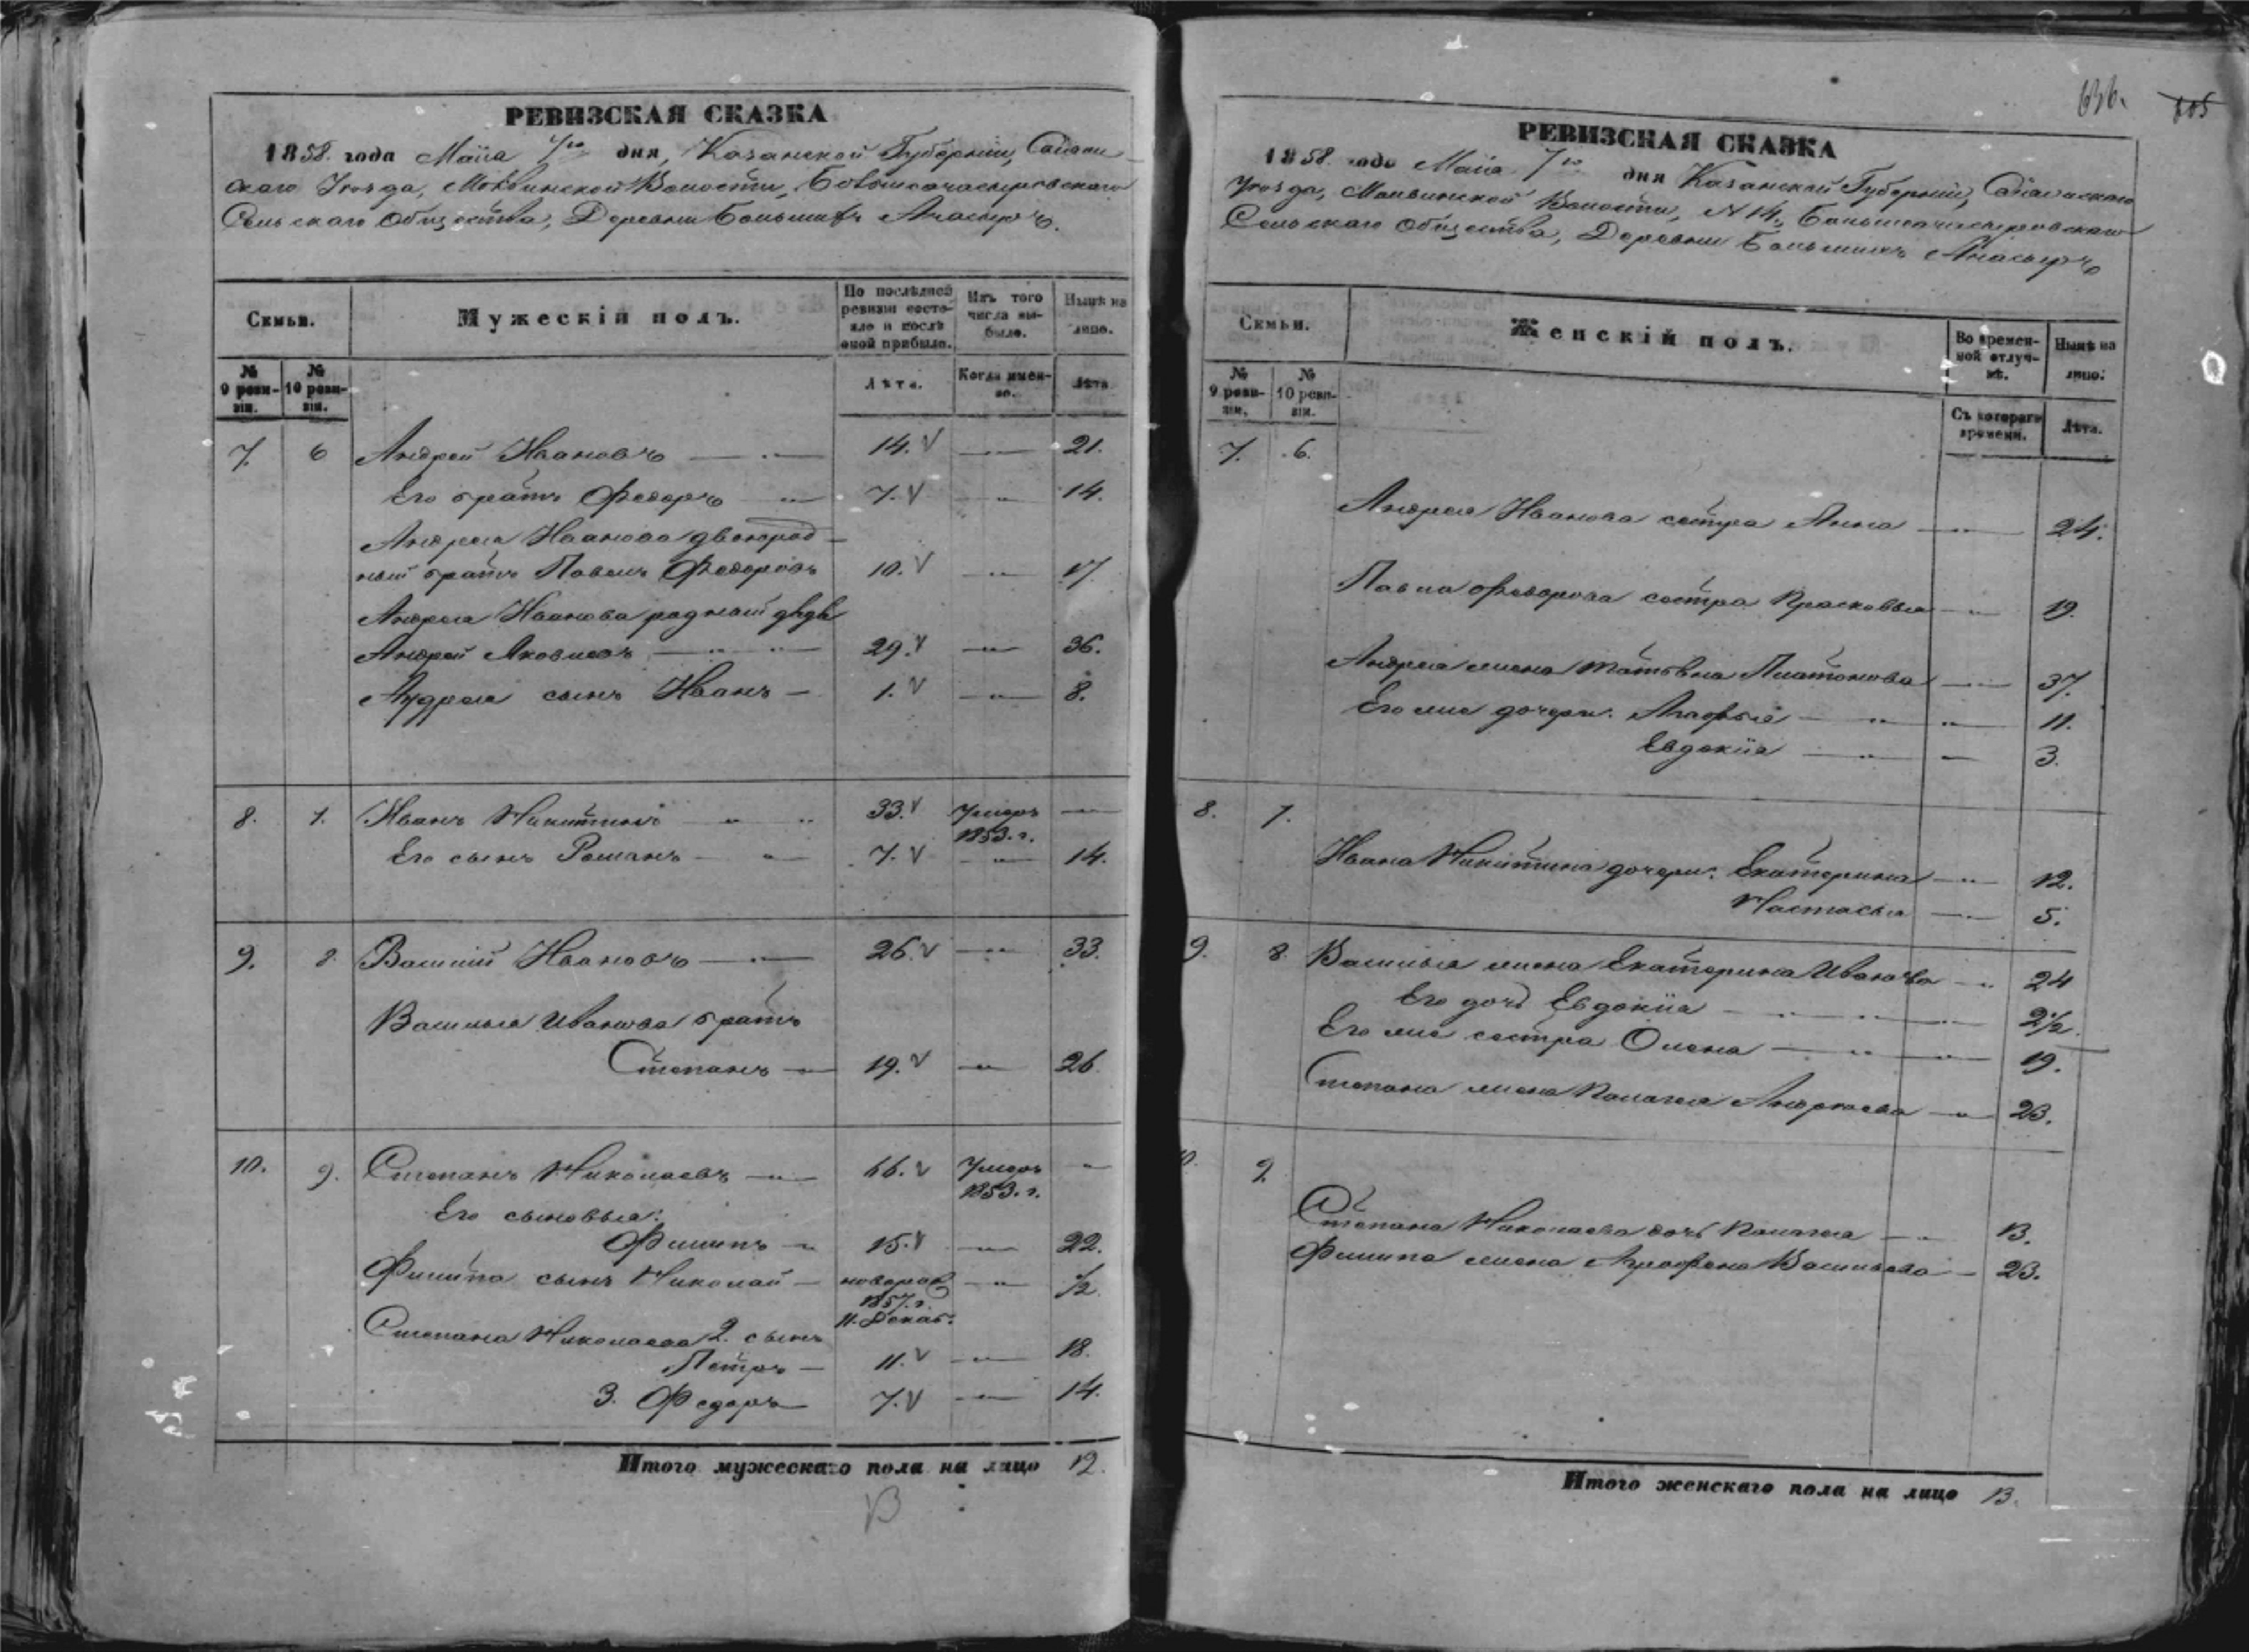 РЕВИЗСКАЯ СКАЗКА
1858. года Маія 7го дня, Казанской Губерніи,
скаго Уѣзда, Волости,
Сельскаго Общества, Деревни Большихъ Ачасыръ.
Семьи.
Мужескій полъ.
По послѣдней ревизіи состояло и послѣ оной прибыло.
Изъ того числа выбыло.
Нынѣ на лицо.
№ 9 ревизіи.
№ 10 ревизіи.
Лѣта.
Когда именно.
Лѣта
7. 6 Андрей Ивановъ 14. 21.
Его братъ Федоръ 7. 14.
Андрея Иванова двоюрод-
ный братъ Павелъ Федоровъ 10. 17
Андрея Иванова родный дядя
Андрей Яковлевъ 29. 36.
Андрея сынъ Иванъ 1. 8.
8. 7. Иванъ Никитинъ 33. Умеръ 1853. г.
Его сынъ Романъ 7. 14.
9. 8. Василій Ивановъ 26. 33.
Василья Иванова братъ
Степанъ 19. 26
10. 9. Степанъ Николаевъ 66. Умеръ 1853. г.
Его сыновья:
Филипъ 15. 22.
Филипа сынъ Николай новорож 1857. г. 11. Декаб. 1/2
Степана Николаева 2. сынъ
Петръ 11. 18.
3. Федоръ 7. 14.
Итого мужескаго пола на лицо 12.
13
636. 605
РЕВИЗСКАЯ СКАЗКА
1858. года Маія 7го дня Казанской Губерніи,
Уѣзда, Волости, №14,
Сельскаго Общества, Деревни Большихъ Ачасыръ
Семьи.
Женскій полъ.
Во временной отлучкѣ.
Нынѣ на лицо.
№ 9 ревизіи.
№ 10 ревизіи.
Съ котораго времени.
Лѣта.
7. 6.
Андрея Иванова сестра Анна 24.
Павла Федорова сестра Прасковья 19.
Андрея жена Платонова 37.
Его же дочери: 11.
Евдокія 3.
8. 7.
Ивана Никитина дочери: Екатерина 12.
Настасья 5.
9. 8. Василья жена Екатерина Иванова 24
Его дочь Евдокія 2 1/2.
Его же сестра Олена 19.
Степана жена Палагея Андреева 23.
9.
Степана Николаева дочь Палагея 13.
Филипа жена Аграфена Васильева 23.
Итого женскаго пола на лицо 13.